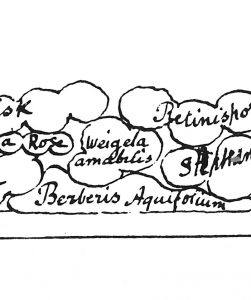 sk
Retinispo
a Rose
Weigela
amabilis
Stephan
Berberis Aquifolium